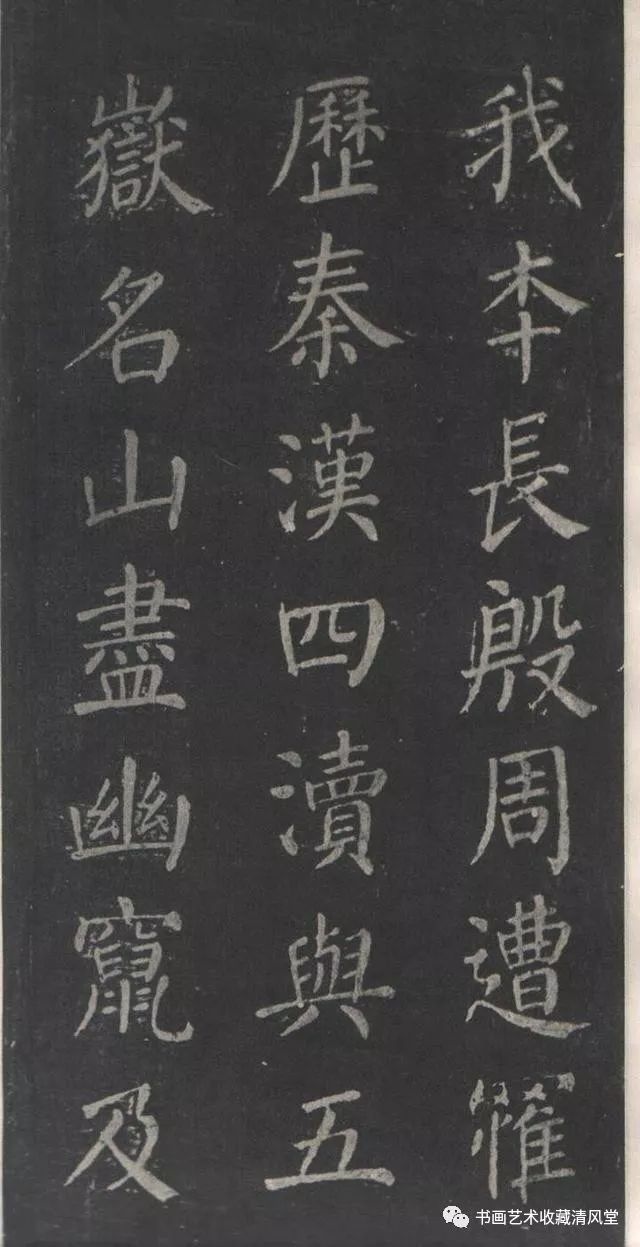 我本長殷周遭罹
歷秦漢四瀆與五
嶽名山盡幽竄及
书画艺术收藏清风堂